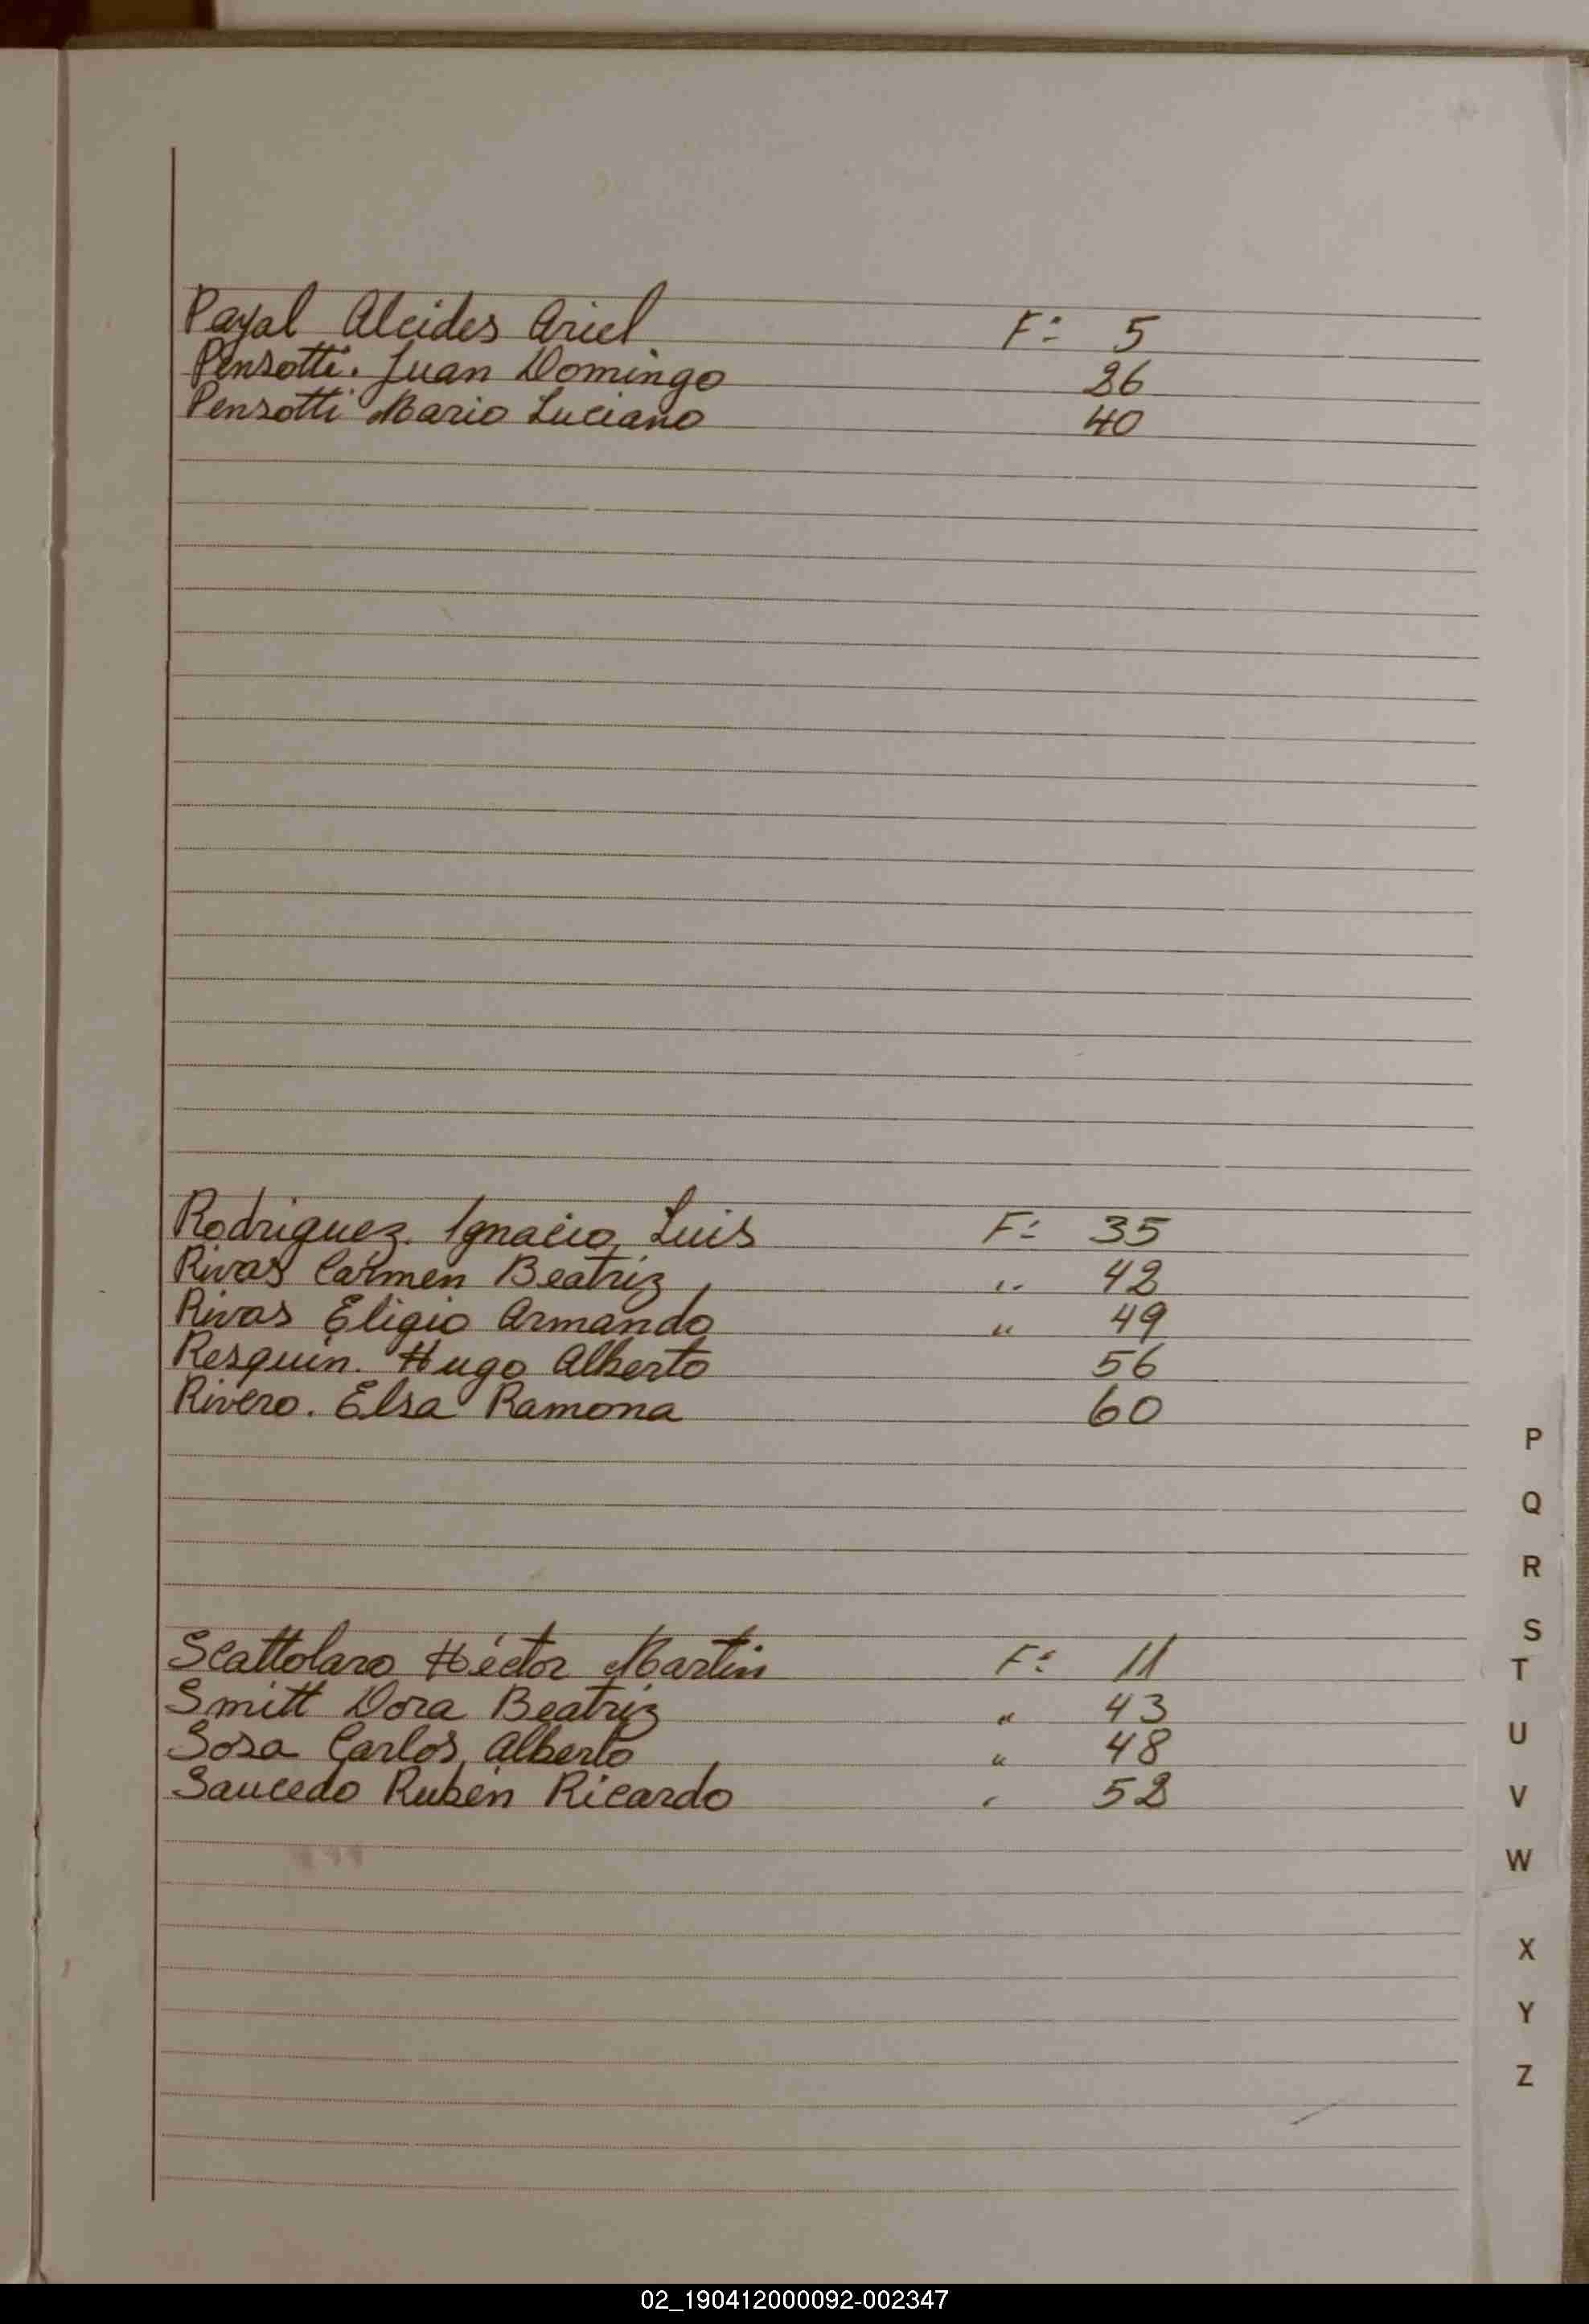 Payal Alcides Ariel F= 5
Pensotti. Juan Domingo 26
Pensotti Mario Luciano 40
Rodriguez. Ignacio Luis F= 35
Rivas Carmen Beatriz " 42
Rivas Eligio Armando " 49
Resquin. Hugo Alberto 56
Rivero. Elsa Ramona 60
Scattolaro Héctor Martin F= 11
Smitt Dora Beatriz " 43
Sosa Carlos Alberto " 48
Saucedo Rubén Ricardo " 52
P
Q
R
S
T
U
V
W
X
Y
Z
02_190412000092-002347